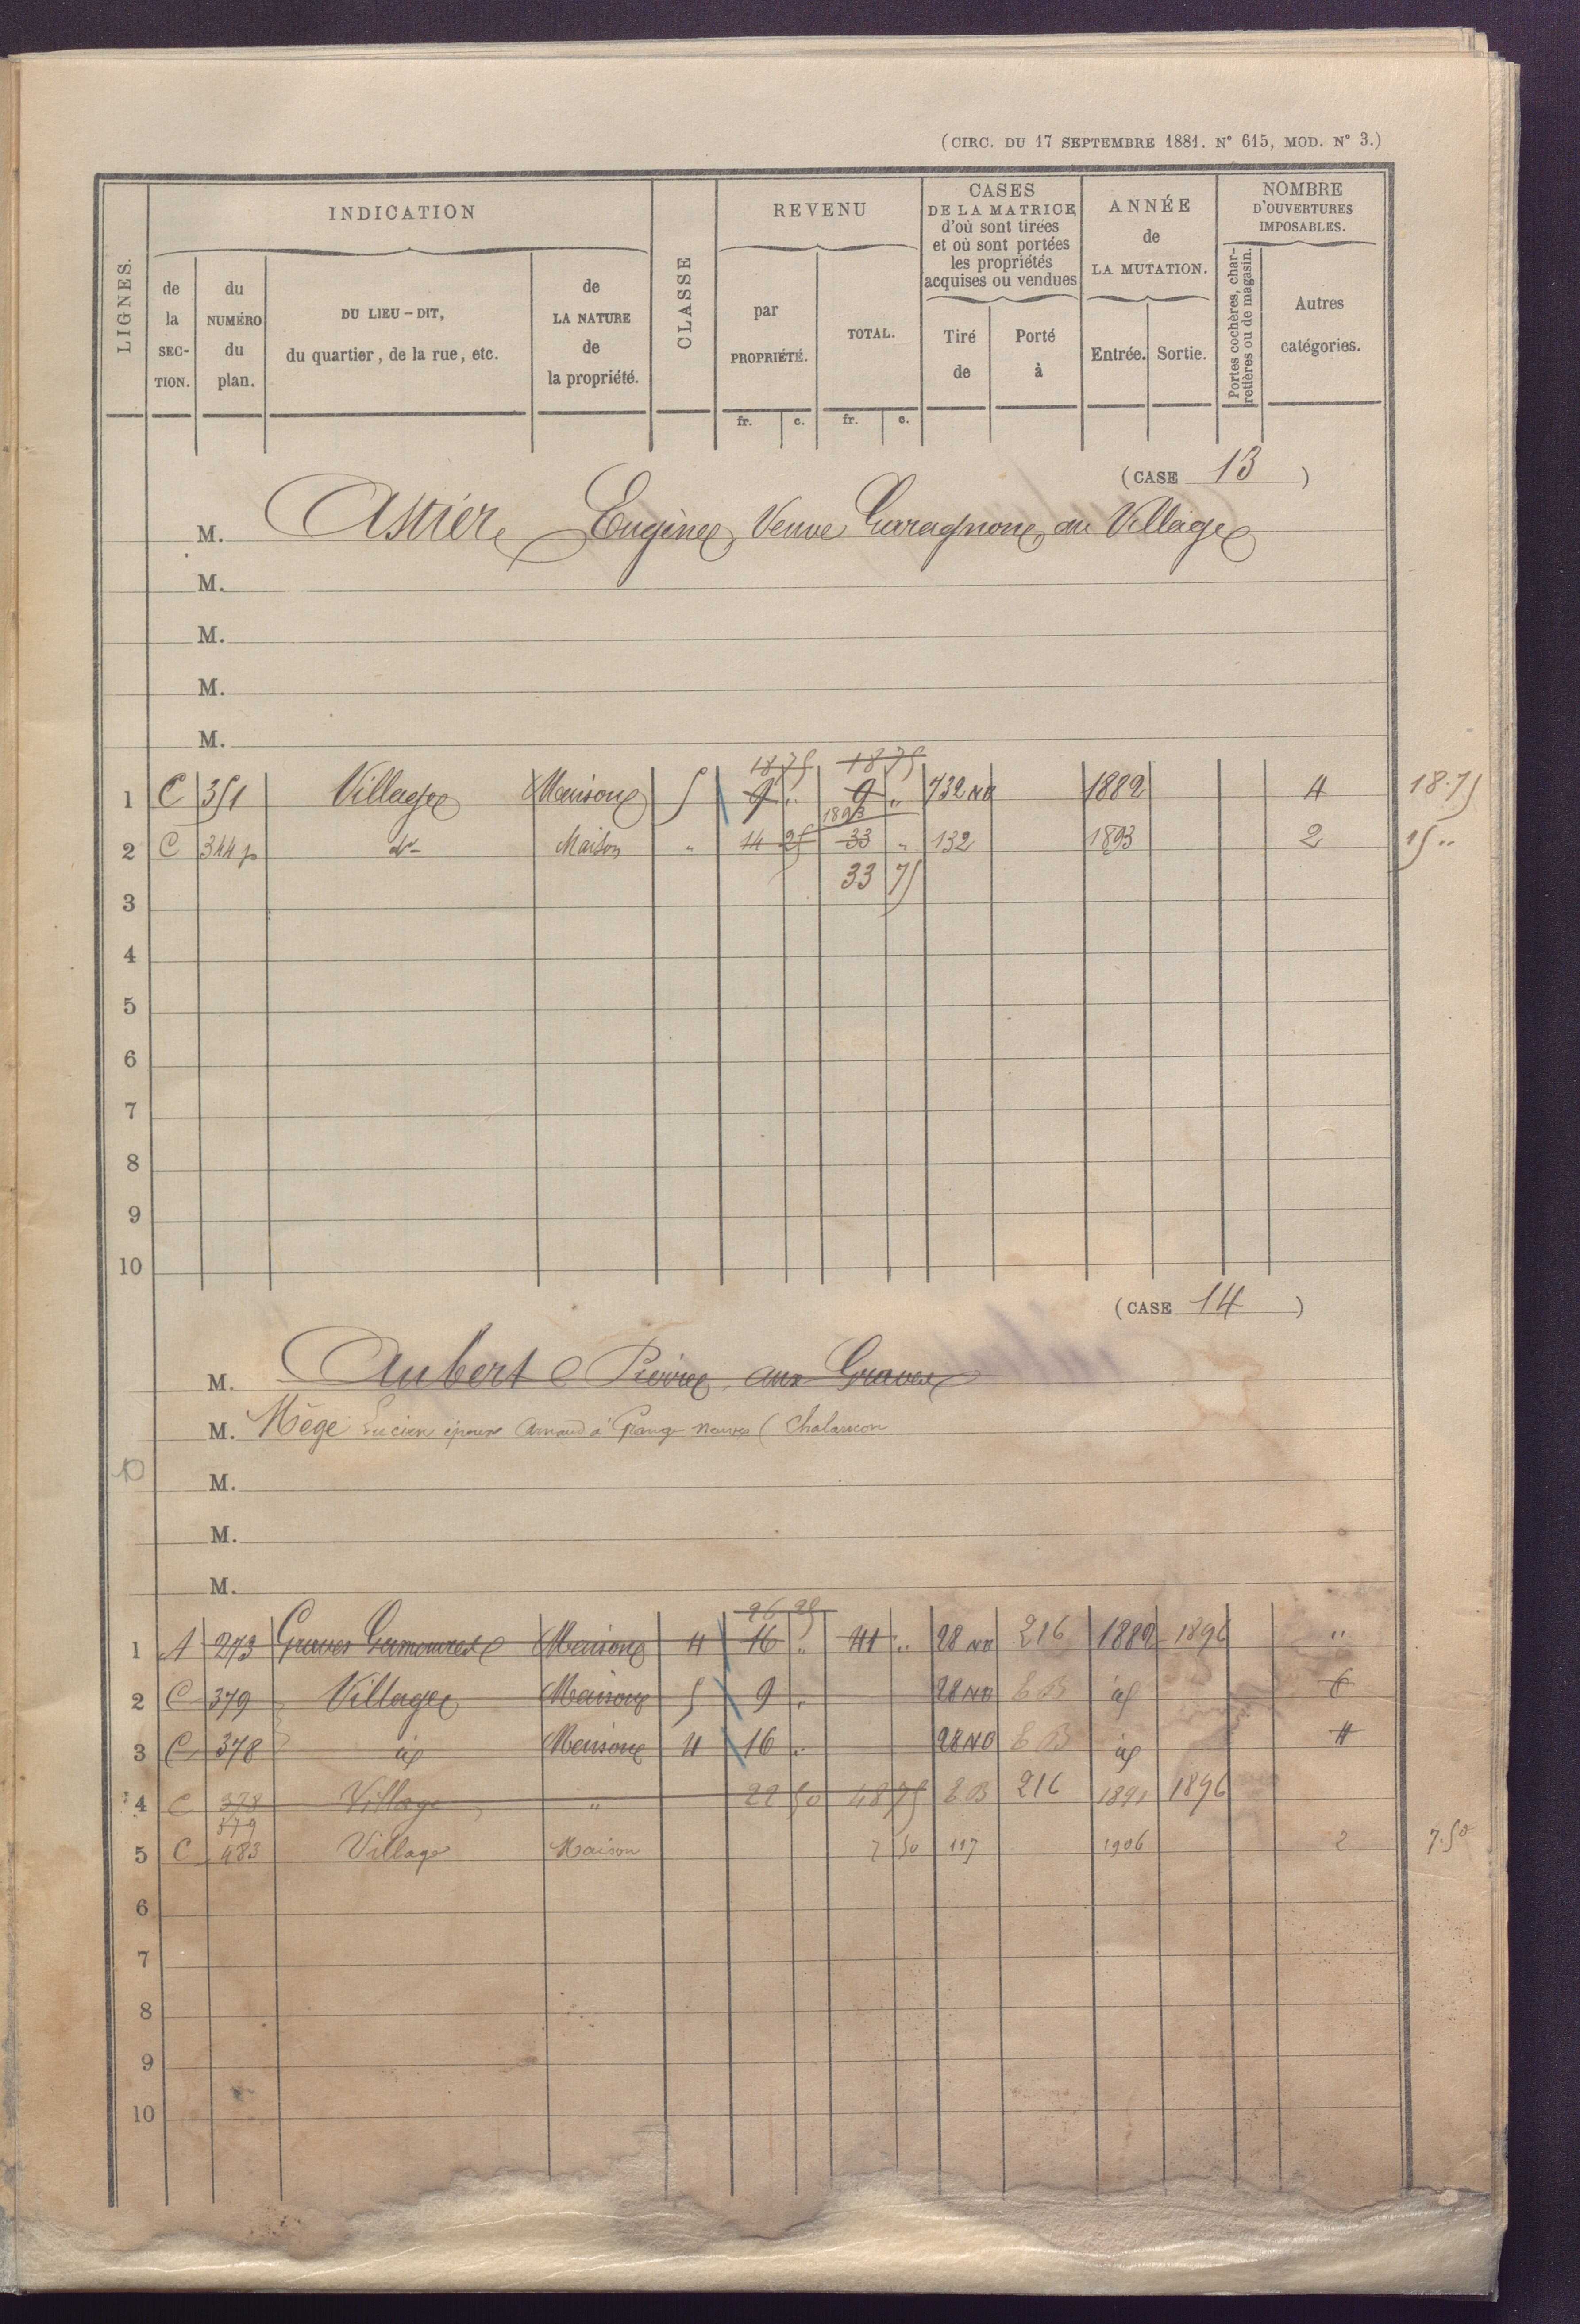 (CIRC. DU 17 SEPTEMBRE 1881. N° 615, MOD. N° 3.)
LIGNES.
INDICATION
de la SECTION.
du NUMÉRO du plan.
DU LIEU-DIT, du quartier, de la rue, etc.
de LA NATURE de la propriété.
CLASSE
REVENU
par PROPRIÉTÉ.
TOTAL.
fr. c. fr. c.
CASES DE LA MATRICE d'où sont tirées et où sont portées les propriétés acquises ou vendues
Tiré de
Porté à
ANNÉE de LA MUTATION.
Entrée. Sortie.
NOMBRE D'OUVERTURES IMPOSABLES.
Portes cochères, charretières ou de magasin.
Autres catégories.
(CASE 13)
M. Astier Eugène, Veuve au Village
M.
M.
M.
M.
18 75 18 75
1 C 351 Village Maison 5 9 " 9 " 732 1882 4 18.75
1893
2 C 344 p do Maison " 14 25 33 " 132 1893 2 15 "
33 75
3
4
5
6
7
8
9
10
(CASE 14)
M. Aubert Pierre, aux Graves
M. Mège Lucien époux Arnaud à Grange neuve (Chalancon
M.
M.
M.
26 25
1 A 273 Graves Maison 4 16 " 41 " 28 216 1882 1896 "
2 C 379 Village Maison 5 9 " 28 E B id 6
3 C 378 id Maison 4 16 " 28 E B id 4
4 C 378 Village " 22 50 48 75 E B 216 1891 1896
379
5 C 483 Village Maison 7 50 117 1906 2 7.50
6
7
8
9
10